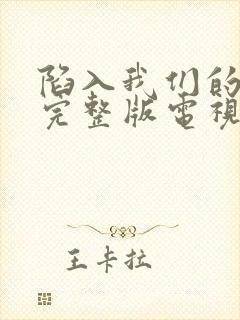 陷入我们的
完整版電視
王卡拉